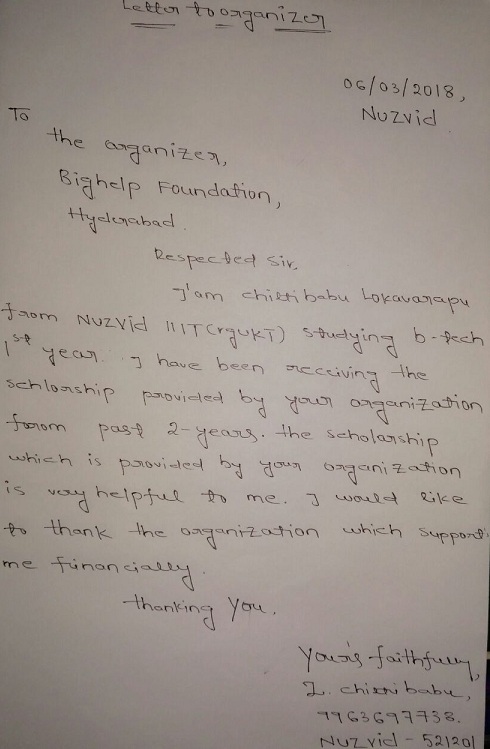 Letter to organizer
06/03/2018,
Nuzvid
To
the organizer,
Bighelp Foundation,
Hyderabad.
Respected Sir,
I'am chittibabu Lokavarapu
from Nuzvid IIIT(rgukt) studying b-tech
1st year. I have been receiving the
schlorship provided by your organization
from past 2-years. the scholarship
which is provided by your organization
is very helpful to me. I would like
to thank the organization which supports
me financially.
thanking you.
your's faithfully,
L. chittibabu,
9963697738.
Nuzvid - 521201